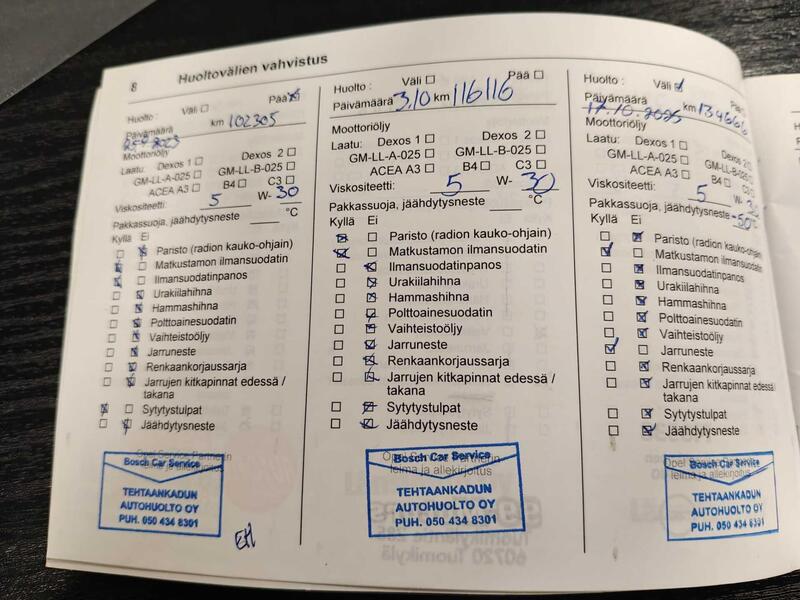 8
Huoltovälien vahvistus
Huolto : Väli Pää
Päivämäärä km 102305
Moottoriöljy
Laatu: Dexos 1 Dexos 2
GM-LL-A-025 GM-LL-B-025
ACEA A3 B4 C3
Viskositeetti: 5 W- 30
Pakkassuoja, jäähdytysneste °C
Kyllä Ei
Paristo (radion kauko-ohjain)
Matkustamon ilmansuodatin
Ilmansuodatinpanos
Urakiilahihna
Hammashihna
Polttoainesuodatin
Vaihteistoöljy
Jarruneste
Renkaankorjaussarja
Jarrujen kitkapinnat edessä /
takana
Sytytystulpat
Jäähdytysneste
Opel Service Partnerin
leima ja allekirjoitus
Bosch Car Service
TEHTAANKADUN
AUTOHUOLTO OY
PUH. 050 434 8301
EH
Huolto : Väli Pää
Päivämäärä 3.10 km 116116
Moottoriöljy
Laatu: Dexos 1 Dexos 2
GM-LL-A-025 GM-LL-B-025
ACEA A3 B4 C3
Viskositeetti: 5 W- 30
Pakkassuoja, jäähdytysneste °C
Kyllä Ei
Paristo (radion kauko-ohjain)
Matkustamon ilmansuodatin
Ilmansuodatinpanos
Urakiilahihna
Hammashihna
Polttoainesuodatin
Vaihteistoöljy
Jarruneste
Renkaankorjaussarja
Jarrujen kitkapinnat edessä /
takana
Sytytystulpat
Jäähdytysneste
Opel Service Partnerin
leima ja allekirjoitus
Bosch Car Service
TEHTAANKADUN
AUTOHUOLTO OY
PUH. 050 434 8301
Huolto : Väli
Päivämäärä km 134666
17.10.2025
Moottoriöljy
Laatu: Dexos 1 Dexos 2
GM-LL-A-025 GM-LL-B-025
ACEA A3 B4 C3
Viskositeetti: 5 W- 3
Pakkassuoja, jäähdytysneste -50 °C
Kyllä Ei
Paristo (radion kauko-ohjain)
Matkustamon ilmansuodatin
Ilmansuodatinpanos
Urakiilahihna
Hammashihna
Polttoainesuodatin
Vaihteistoöljy
Jarruneste
Renkaankorjaussarja
Jarrujen kitkapinnat edessä
takana
Sytytystulpat
Jäähdytysneste
Opel Service Partnerin
leima ja allekirjoitus
Bosch Car Service
TEHTAANKADUN
AUTOHUOLTO OY
PUH. 050 434 8301